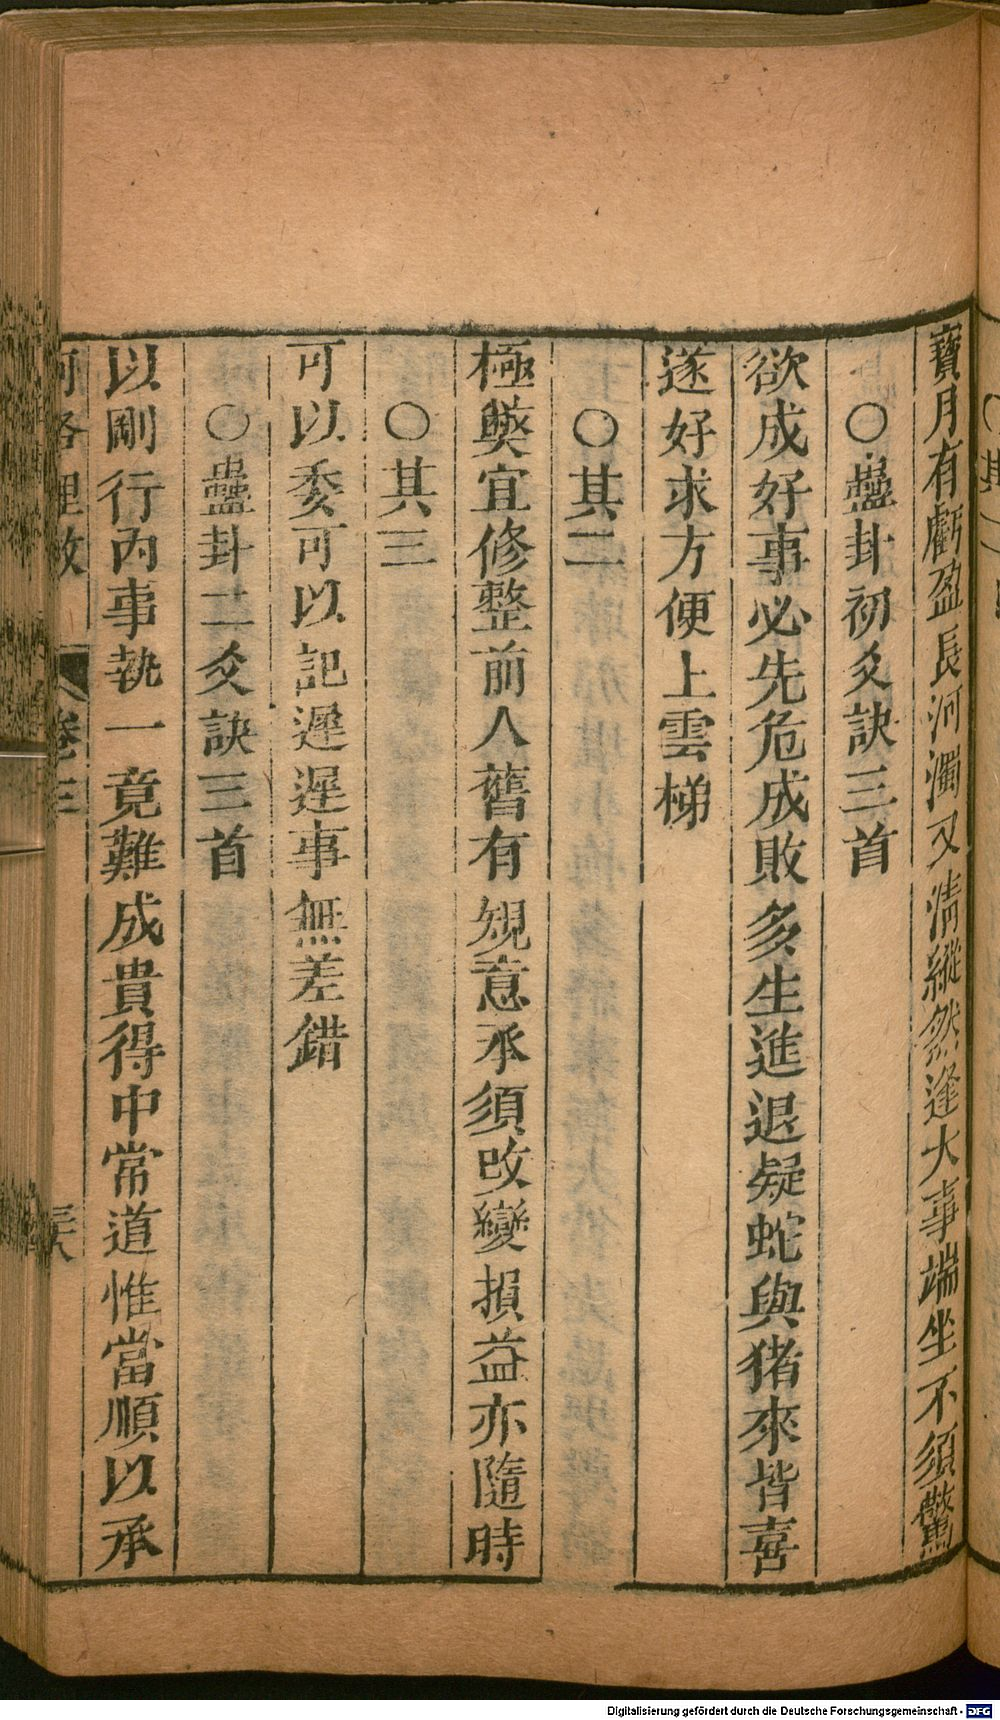 寶月有虧盈長河濁又清縱然逢大事端坐不須驚
○蠱卦初爻訣三首
欲成好事必先危成敗多生進退疑蛇與猪來皆喜
遂好求方便上雲梯
○其二
極獘宜修整前人舊有規意承須改變損益亦隨時
○其三
可以委可以記遲遲事無差錯
○蠱卦二爻訣三首
以剛行內事執一竟難成貴得中常道惟當順以承
河洛理數
卷三
三六
○其
Digitalisierung gefördert durch die Deutsche Forschungsgemeinschaft - DFG